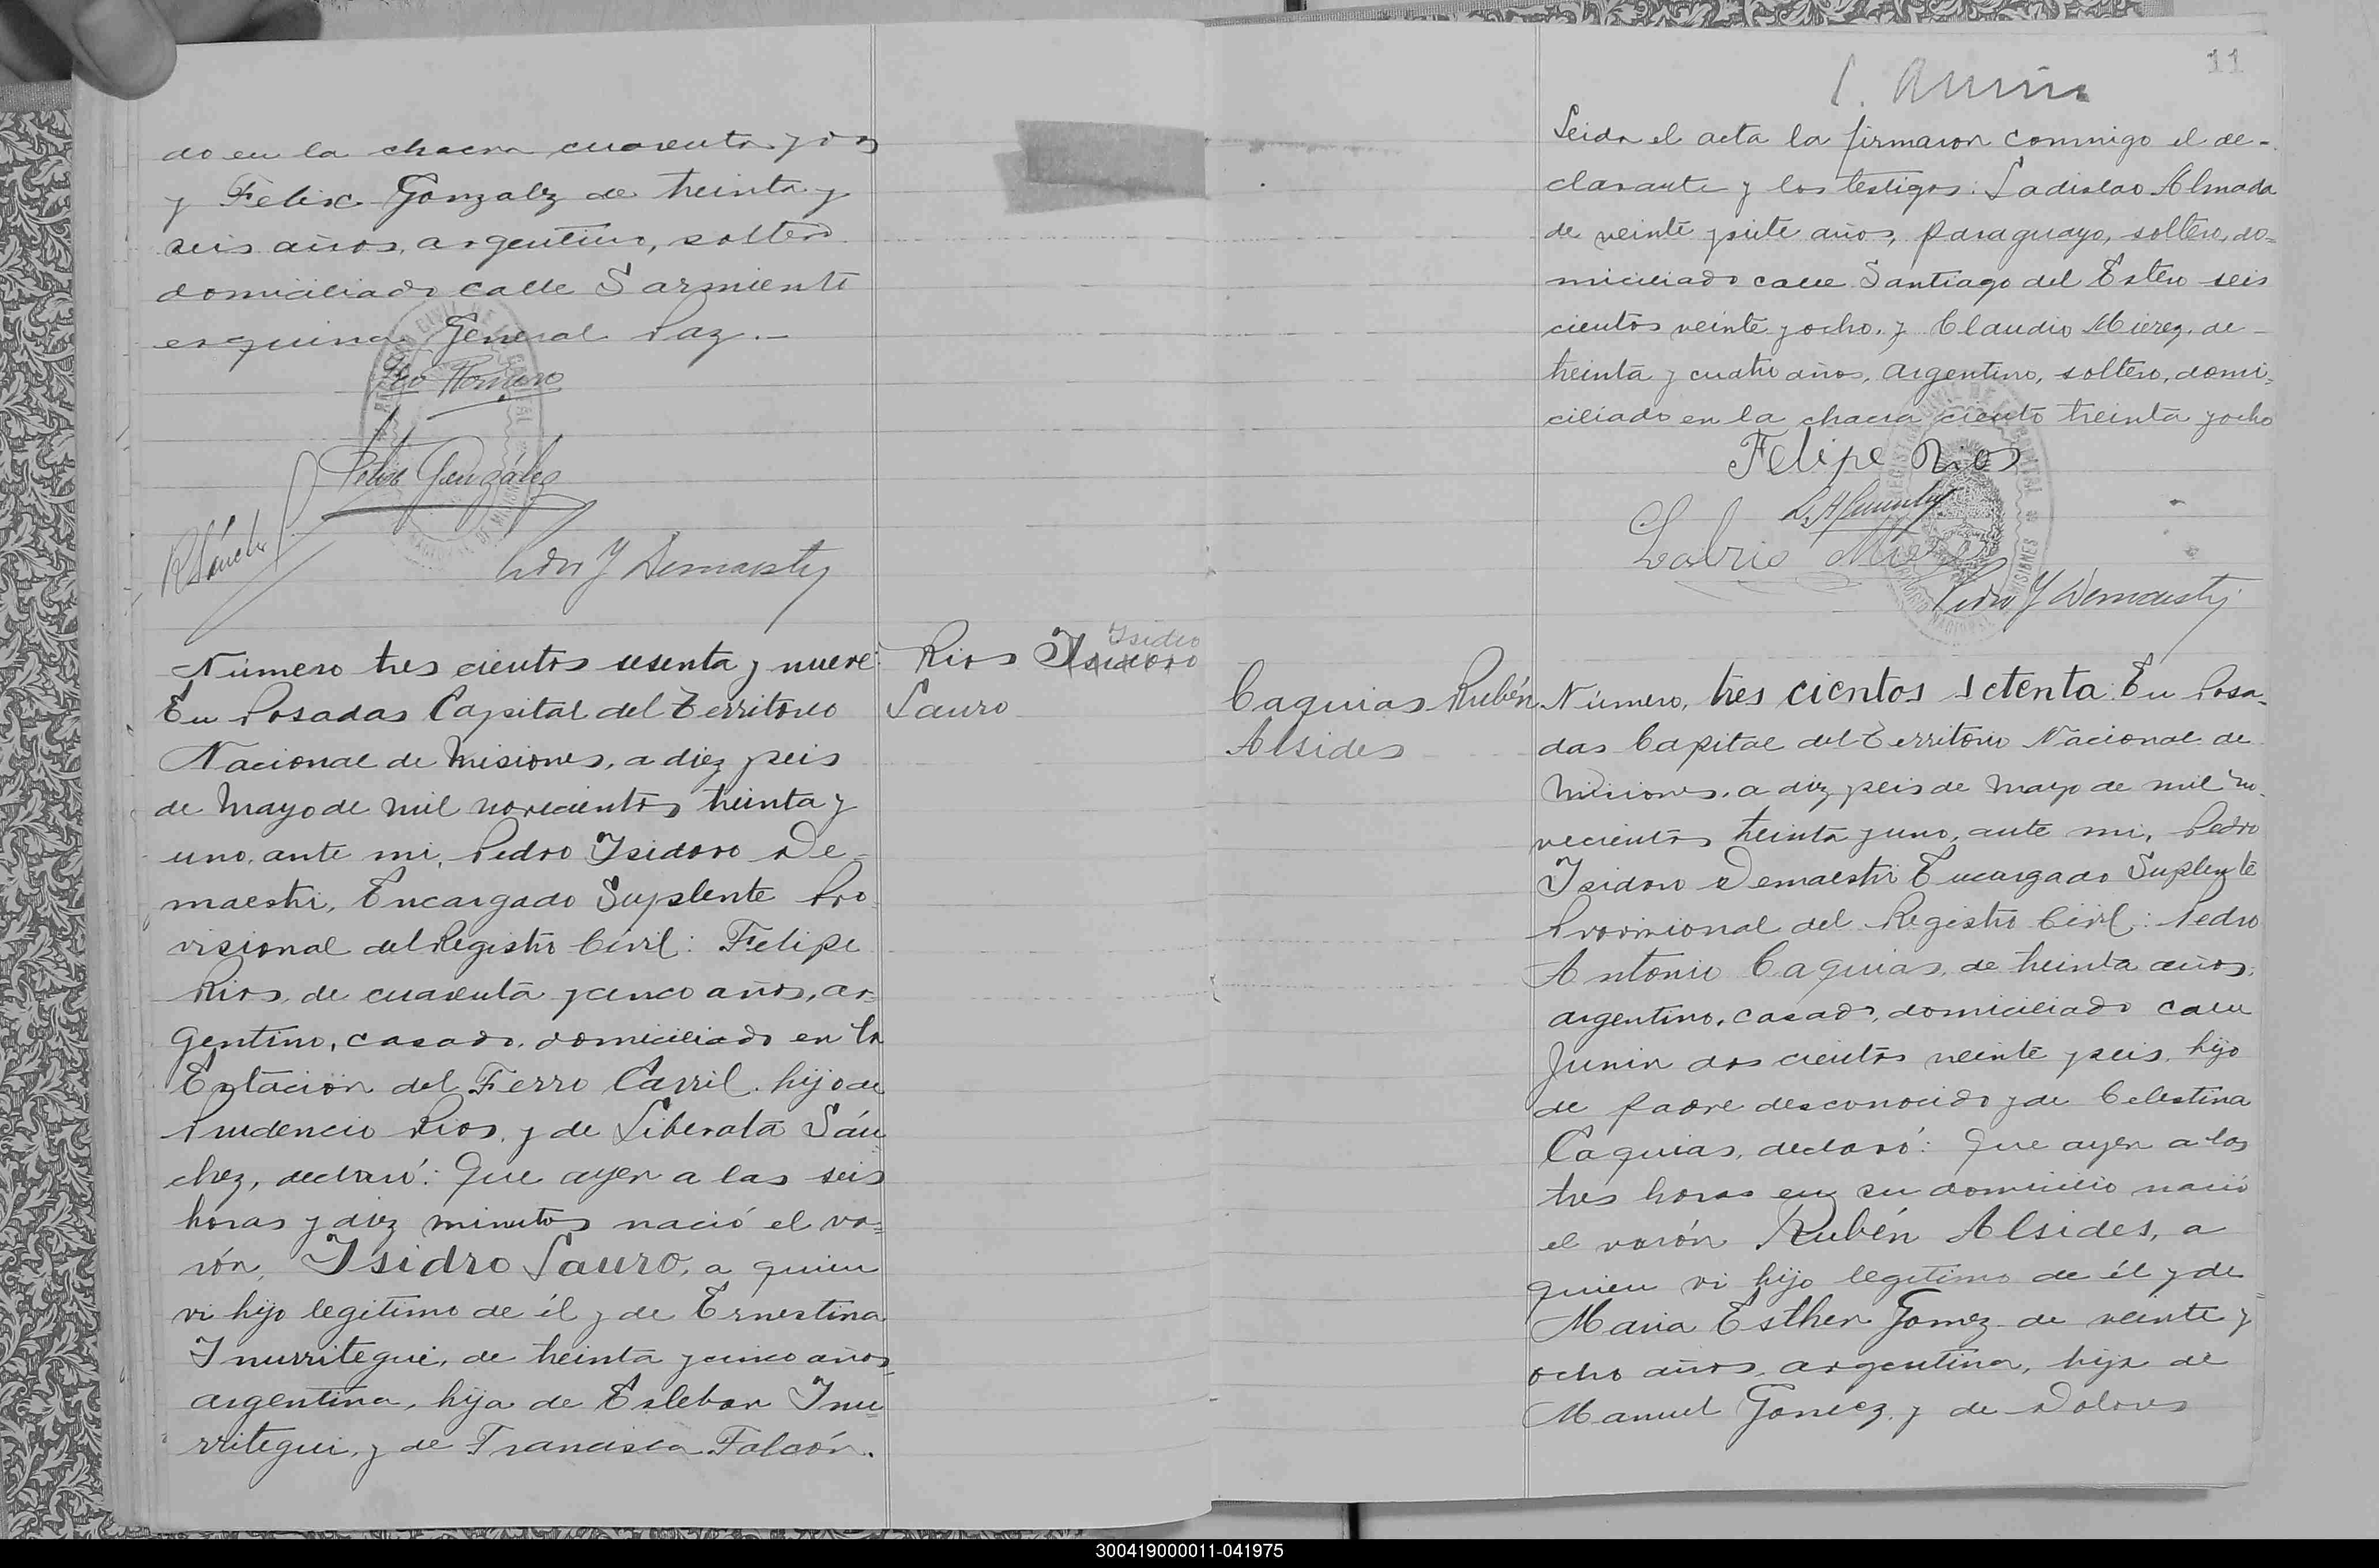 do en la chacra cuarenta y dos
y Felix Gonzalez de treinta y
seis años, argentino, soltero
domiciliado calle Sarmiento
esquina General Paz.-
Felix González
RSánchez
Pedro Y Demaestri
Número tres cientos sesenta y nueve:
En Posadas Capital del Territorio
Nacional de Misiones, a diez y seis
de Mayo de mil novecientos treinta y
uno, ante mi, Pedro Isidoro De-
maestri, Encargado Suplente Pro-
visional del Registro Civil: Felipe
Rios, de cuarenta y cinco años, ar-
gentino, casado, domiciliado en la
Estación del Ferro Carril, hijo de
Prudencio Rios, y de Liberata Sán-
chez, declaró: Que ayer a las seis
horas y diez minutos nació el va-
rón, Isidro Lauro, a quien
vi hijo legitimo de él y de Ernestina
Inurritegui, de treinta y cinco años
argentina, hija de Esteban Inu-
rritegui, y de Francisca Falcón.
Isidro
Rios Isidoro
Lauro
11
Leida el acta la firmaron conmigo el de-
clarante y los testigos: Ladislao Almada
de veinte y siete años, paraguayo, soltero, do-
miciliado calle Santiago del Estero seis
cientos veinte y ocho, y Claudio Mierez, de
treinta y cuatro años, argentino, soltero, domi-
ciliado en la chacra ciento treinta y ocho
Felipe Rios
Pedro Y Demaestri
Caquias Rubén
Alsides
Número, tres cientos setenta: En Posa-
das Capital del Territorio Nacional de
Misiones, a diez y seis de Mayo de mil no-
vecientos treinta y uno, ante mi, Pedro
Isidoro Demaestri Encargado Suplente
Provisional del Registro Civil: Pedro
Antonio Caquias, de treinta años,
argentino, casado, domiciliado calle
Junin dos cientos veinte y seis, hijo
de padre desconocido y de Celestina
Caquias, declaró: Que ayer a las
tres horas en su domicilio nació
el varón Rubén Alsides, a
quien vi hijo legitimo de él y de
Maria Esther Gomez de veinte y
ocho años, argentina, hija de
Manuel Gomez, y de Dolores
300419000011-041975